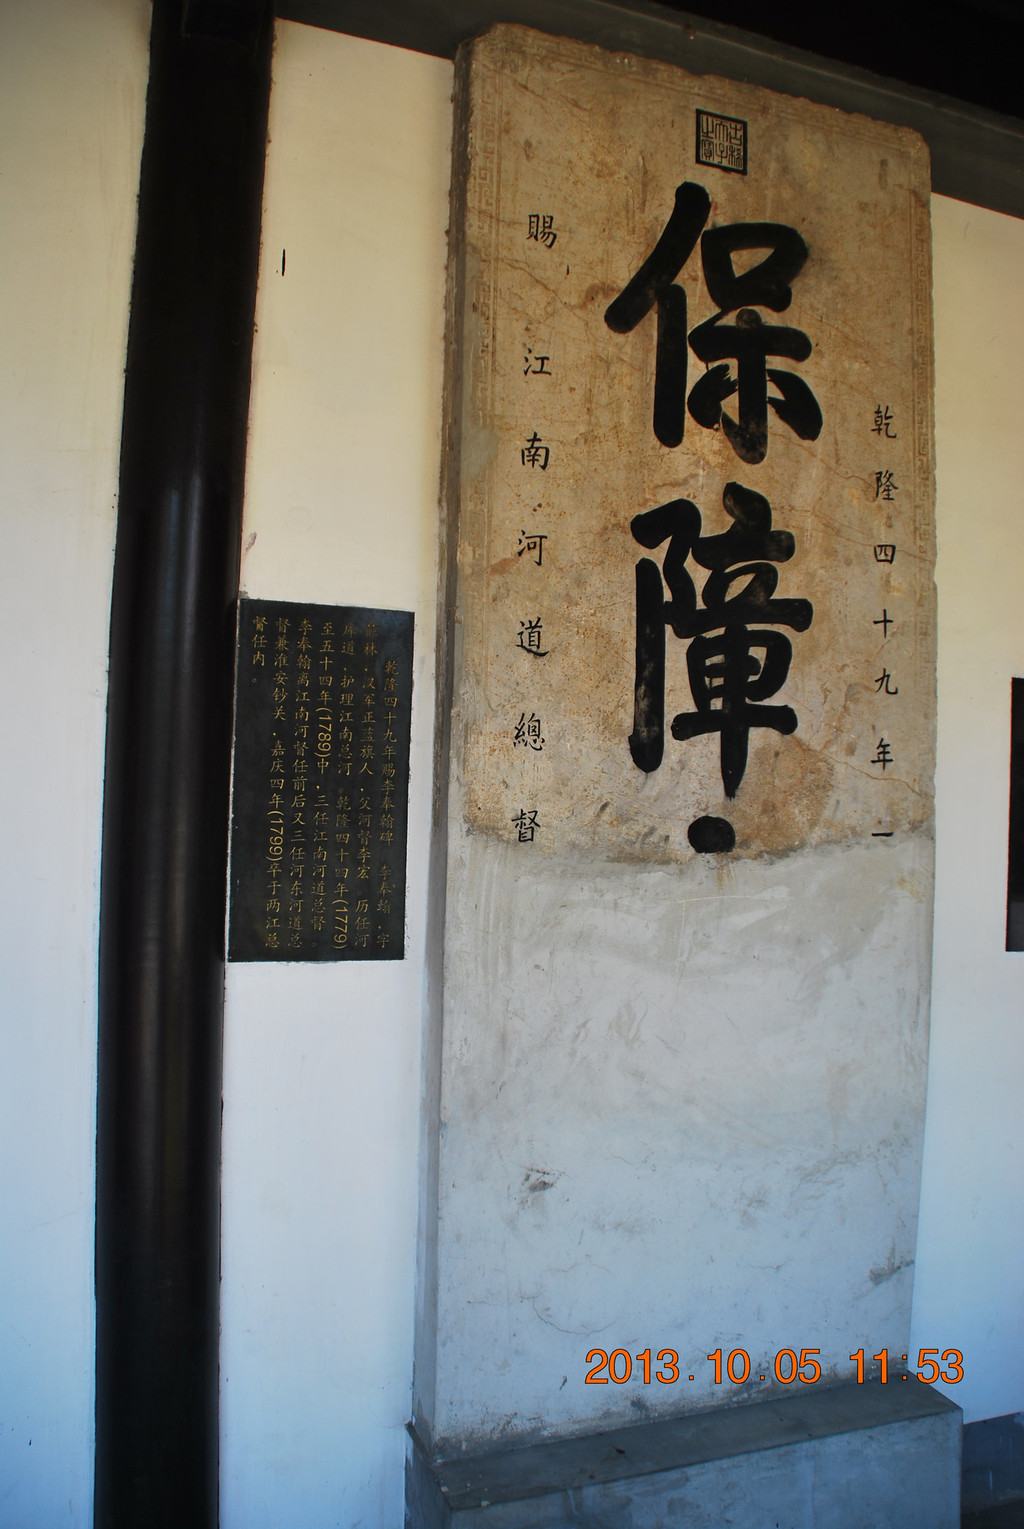 古稀天子之寶
乾隆四十九年一
保障
賜江南河道總督
乾隆四十九年赐李奉翰碑 李奉翰，字
林，汉军正蓝旗人，父河督李宏，历任河
库道，护理江南总河。乾隆四十四年(1779)
至五十四年(1789)中，三任江南河道总督。
李奉翰离江南河督任前后又三任河东河道总
督兼淮安钞关，嘉庆四年(1799)卒于两江总
督任内。
2013.10.05 11:53